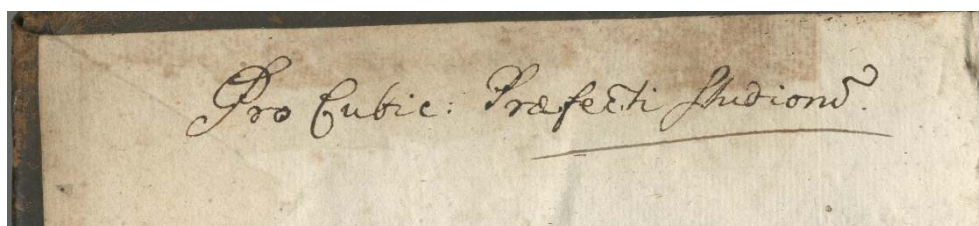 Pro Cubic: Præfecti Studioru͂.